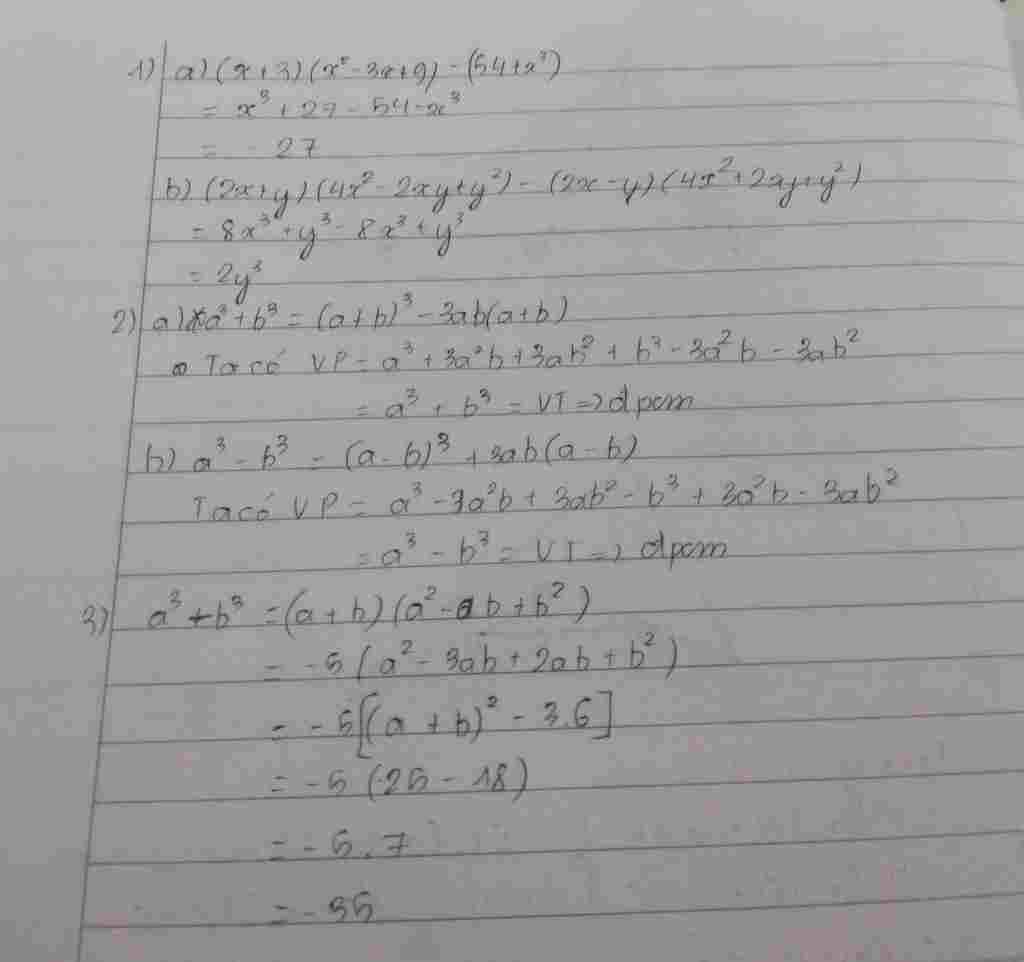 1) a) (x + 3)(x² - 3x + 9) - (54 + x³)
= x³ + 27 - 54 - x³
= - 27
b) (2x + y)(4x² - 2xy + y²) - (2x - y)(4x² + 2xy + y²)
= 8x³ + y³ - 8x³ + y³
= 2y³
2) a) a³ + b³ = (a + b)³ - 3ab(a + b)
Ta có VP = a³ + 3a²b + 3ab² + b³ - 3a²b - 3ab²
= a³ + b³ = VT => dpcm
b) a³ - b³ = (a - b)³ + 3ab(a - b)
Ta có VP = a³ - 3a²b + 3ab² - b³ + 3a²b - 3ab²
= a³ - b³ = VT => dpcm
3) a³ + b³ = (a + b)(a² - ab + b²)
= -5(a² - 3ab + 2ab + b²)
= -5[(a + b)² - 3.6]
= -5(25 - 18)
= -5.7
= -35